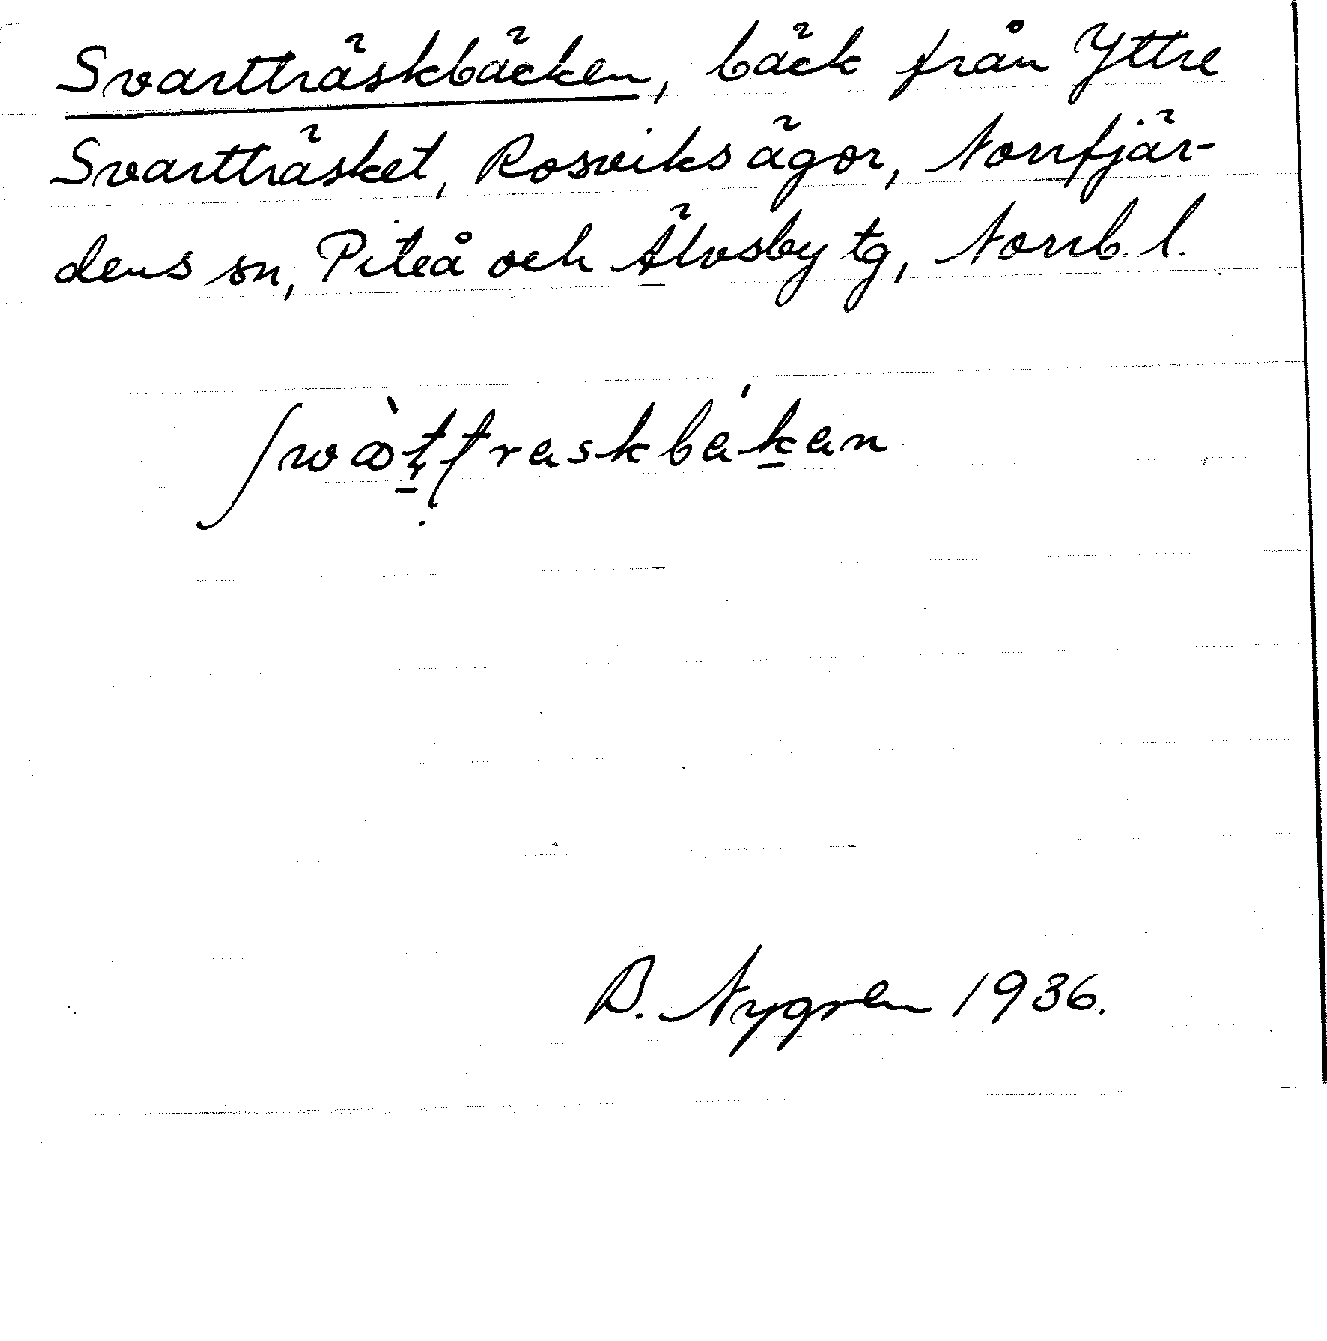 Svartträskbäcken, bäck från Yttre
Svartträsket, Rosviks ägor, Norrfjär-
dens sn, Piteå och Älvsby tg, Norrb. l.
B. Nygren 1936.